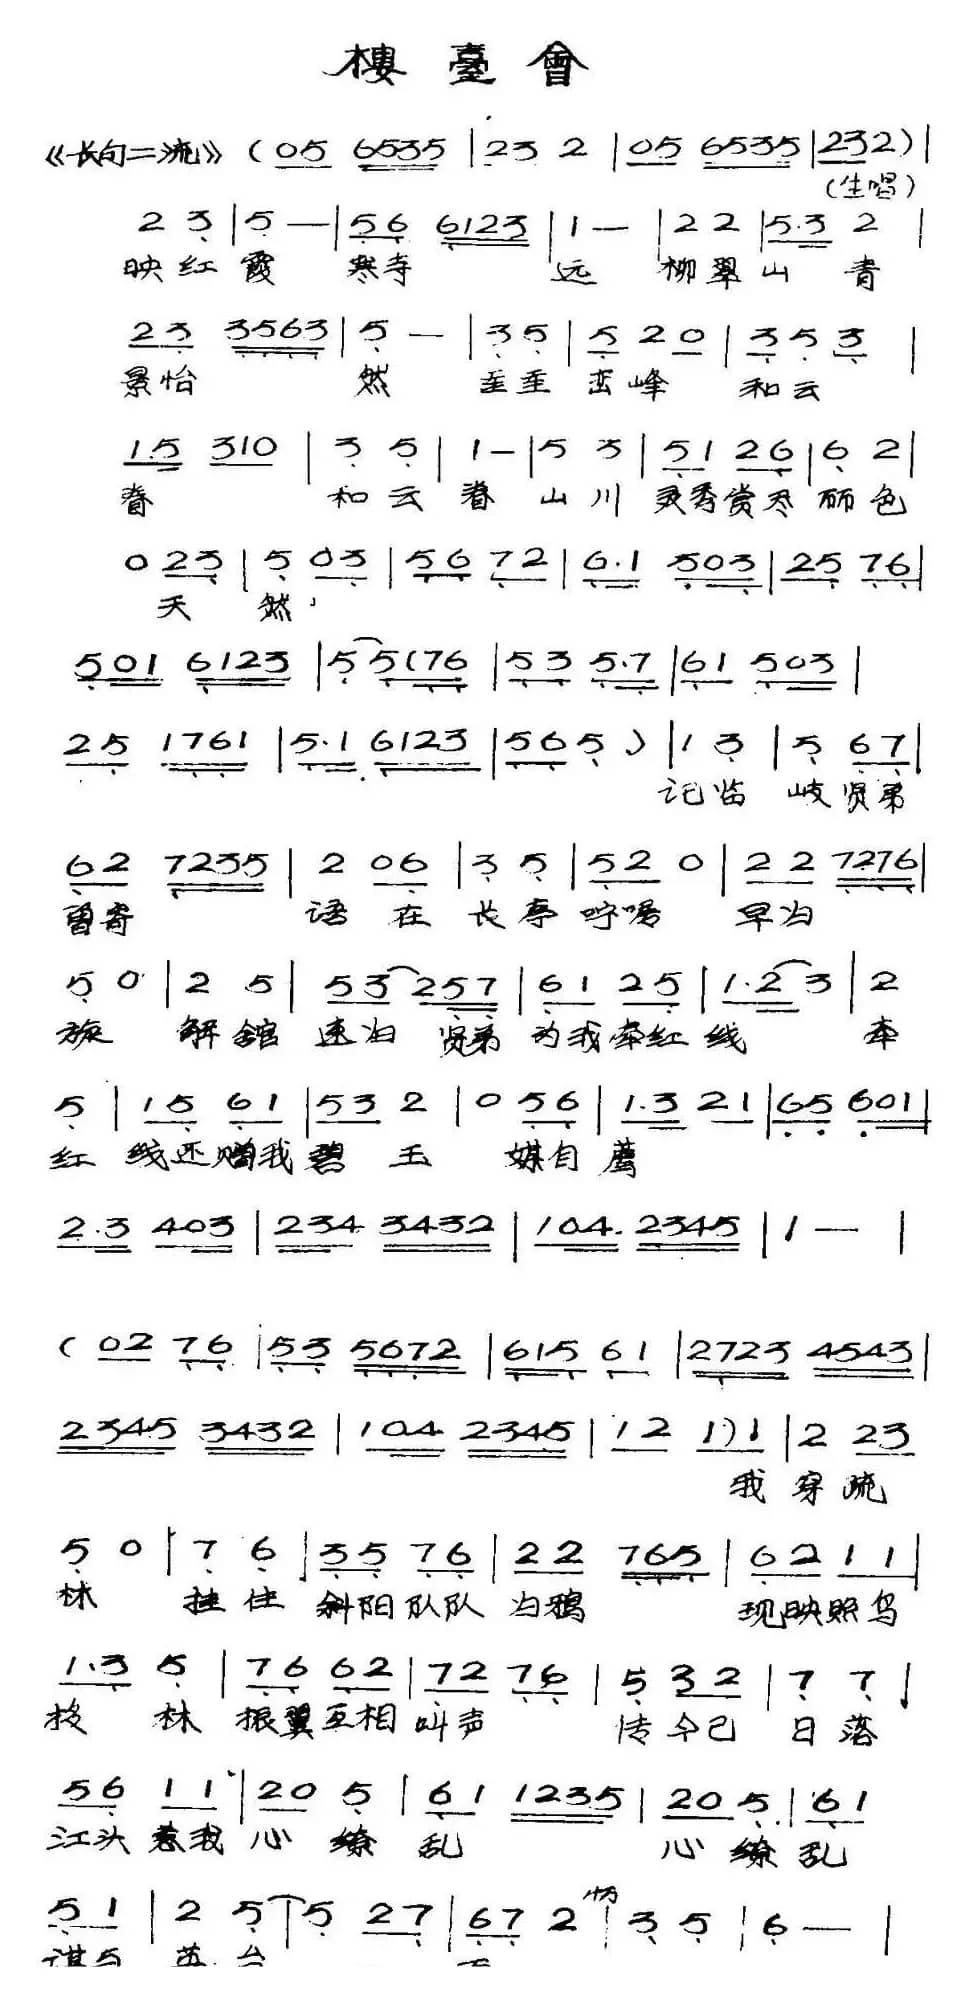 樓臺會
《长句二流》(05 6535 | 23 2 | 05 6535 | 232) |
(生唱)
2 3 | 5 — | 56 6123 | 1 — | 22 | 5.3 2 |
映红霞 寒寺 远 柳翠山 青
23 3563 | 5 — | 35 | 5 20 | 35 3 |
景怡 然 峦峰 和云
1.5 310 | 3 5 | 1 — | 5 3 | 51 26 | 6 2 |
和云 山川 灵秀赏尽 丽色
0 23 | 5 03 | 56 72 | 6.1 503 | 25 76 |
天 然,
501 6123 | 5 5(176 | 53 5.7 | 61 503 |
25 1761 | 5.1 6123 | 565 ) | 1 3 | 5 67 |
记临 岐贤弟
62 7235 | 2 06 | 3 5 | 52 0 | 22 7276 |
曾寄 语 在 长亭 咛嘱 早归
5 0 | 2 5 | 53 257 | 61 25 | 1.2 3 | 2
旋 解馆 速归 贤弟 为我牵红 线 牵
5 | 15 61 | 53 2 | 0 56 | 1.3 21 | 65 601 |
红 线还赠我碧 玉 媒自荐
2.3 403 | 234 3432 | 104. 2345 | 1 — |
( 02 76 | 53 5672 | 615 61 | 2723 4543 |
2345 3432 | 104 2345 | 12 1)1 | 2 23
我 穿 疏
5 0 | 7 6 | 35 76 | 22 765 | 62 11 |
林 挂住 斜阳队队 归鸦 现映照鸟
1.3 5 | 76 62 | 72 76 | 5 32 | 7 7 |
投 林 振翼互相 叫声 传今已 日落
56 11 | 20 5 | 61 1235 | 20 5. | 61
江头惹我 心 缭 乱 心 缭 乱
51 | 2 5 | 5 27 | 67 2 | 3 5 | 6 — |